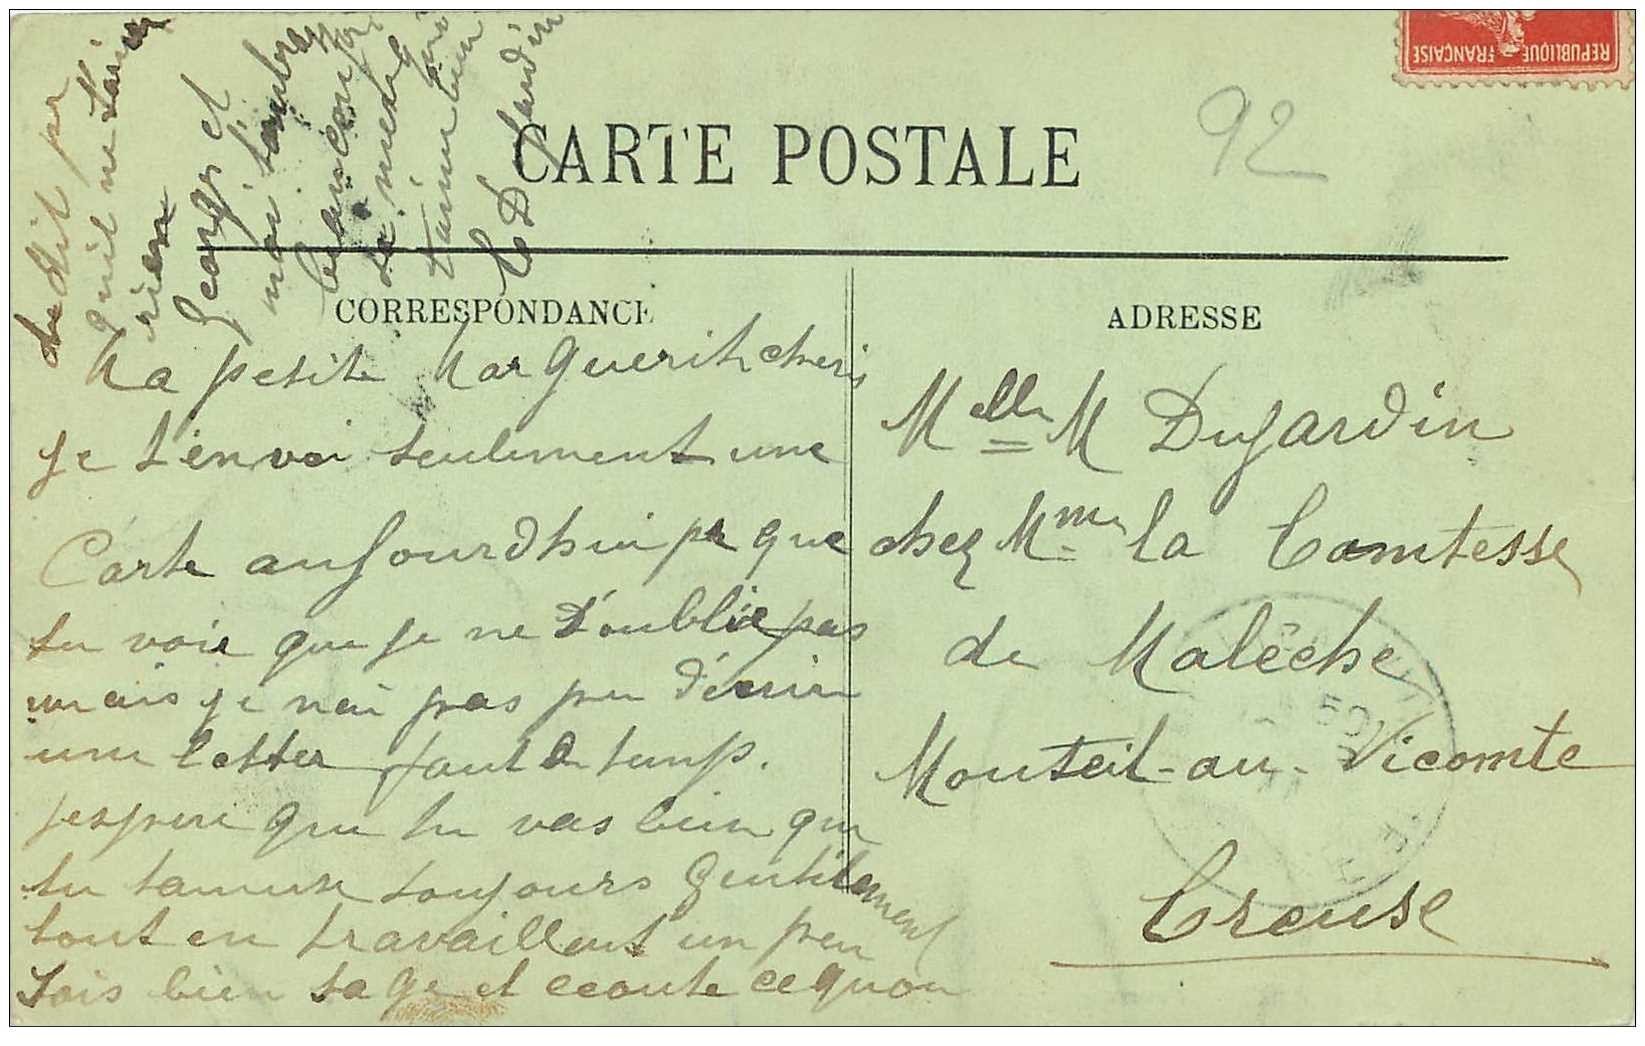 REPUBLIQUE FRANÇAISE
92
CARTE POSTALE
CORRESPONDANCE
ADRESSE
Ma petite Marguerith cheri
je t'envoi seulement une
Carte aujourdhui pr que
tu voie que je ne t'oublie pas
mais je n'ai pas pu d'ecrire
une letter faut de temp.
jespere que tu vas bien que
tu tamuse toujours gentilement
tout en travaillant un peu
sois bien sage et ecoute ce quon
te dit pr
qu'il ne
rien
George et
moi t'embrasse
beaucoup
ta mere qui
t'aime bien
C Dujardin
Melle M Dujardin
chez Mme la Comtesse
de Malèche
Monteil-au-Vicomte
Creuse